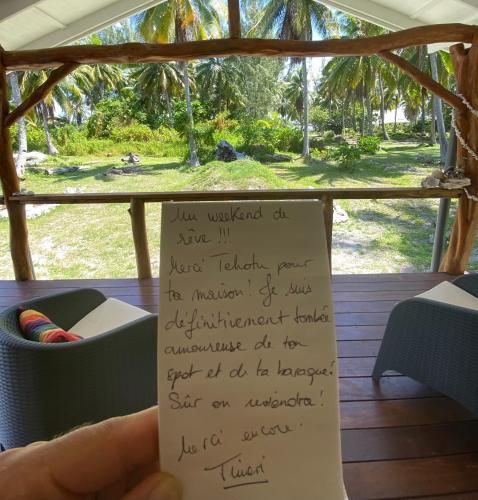 Un weekend de
rêve !!!
Merci Tehotu pour
ta maison! Je suis
définitivement tombée
amoureuse de ton
spot et de ta baraque!
Sûr on reviendra!
Merci encore.